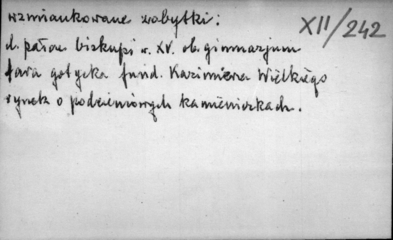 wzmiankowane zabytki:
XII/242
d. pałac biskupi w. XV. ob. gimnazjum
fara gotycka fund. Kazimierza Wielkiego
rynek o podcieniowych kamieniczkach.